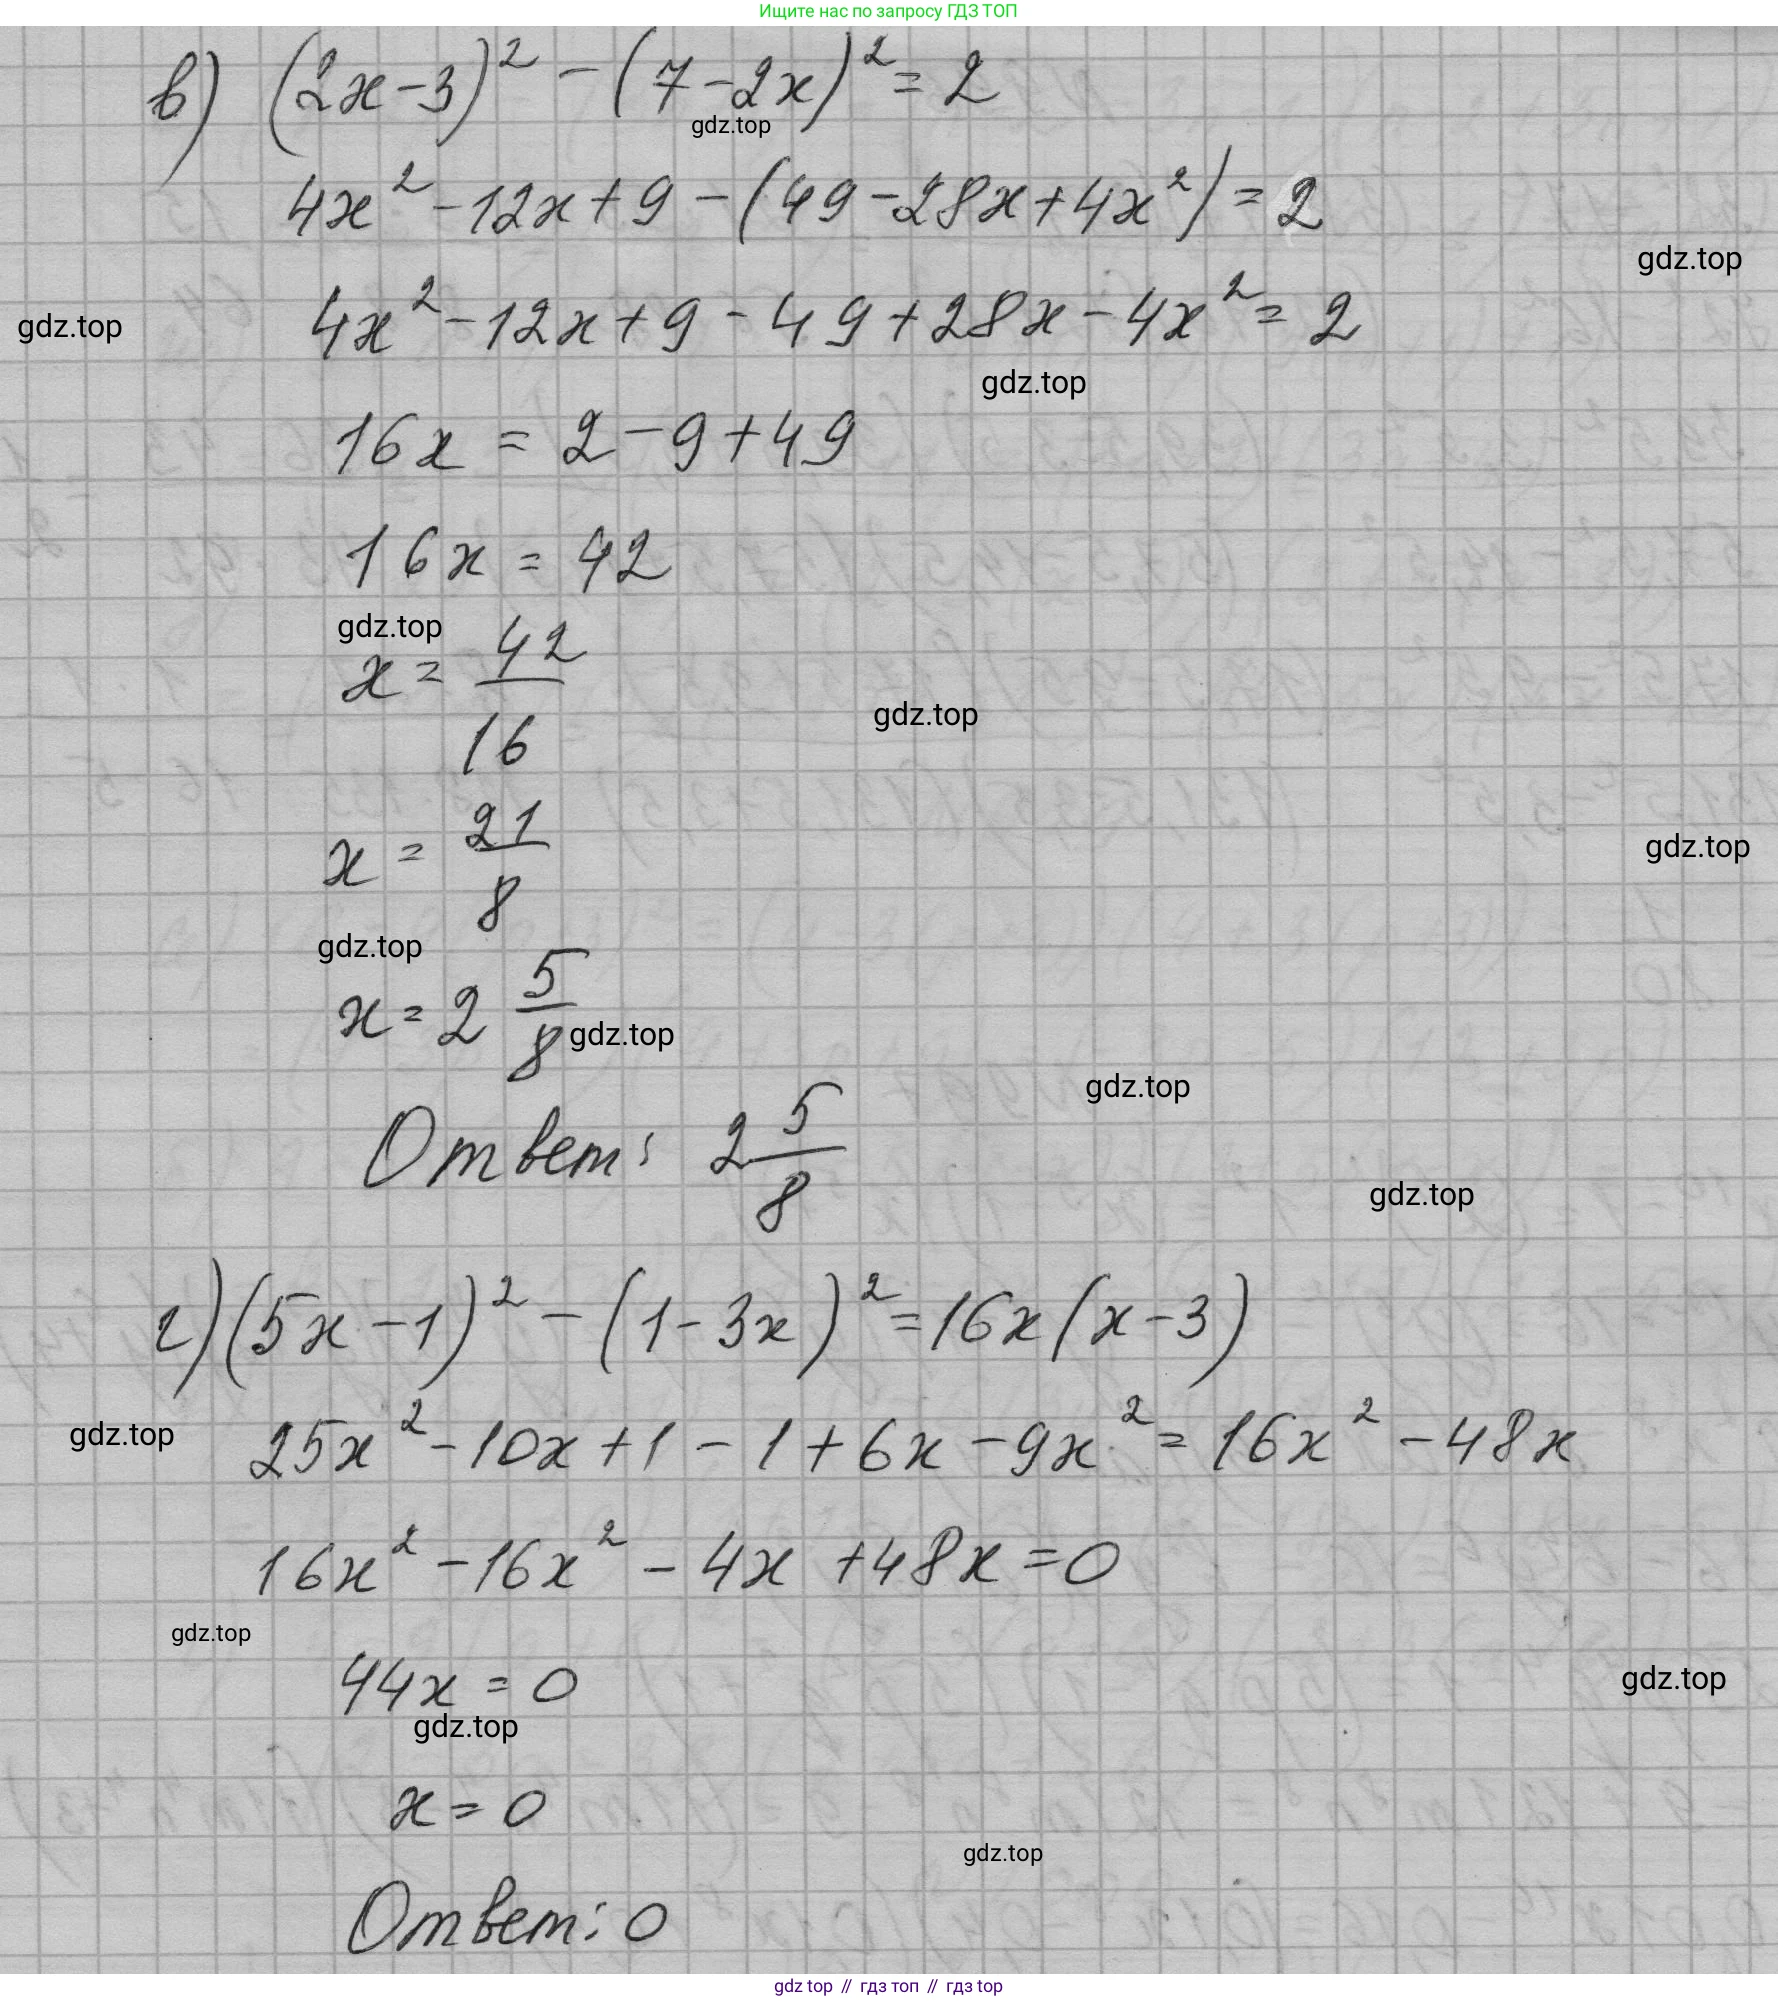 Ищите нас по запросу ГДЗ ТОП
в) (2x-3)² - (7-2x)² = 2
gdz.top
4x² - 12x + 9 - (49 - 28x + 4x²) = 2
gdz.top
gdz.top
4x² - 12x + 9 - 49 + 28x - 4x² = 2
gdz.top
16x = 2 - 9 + 49
16x = 42
gdz.top
x = 42/16
gdz.top
x = 21/8
gdz.top
gdz.top
x = 2 5/8
gdz.top
gdz.top
Ответ: 2 5/8
gdz.top
г) (5x-1)² - (1-3x)² = 16x(x-3)
gdz.top
25x² - 10x + 1 - 1 + 6x - 9x² = 16x² - 48x
16x² - 16x² - 4x + 48x = 0
gdz.top
44x = 0
gdz.top
gdz.top
x = 0
gdz.top
Ответ: 0
gdz top // гдз топ // гдз top